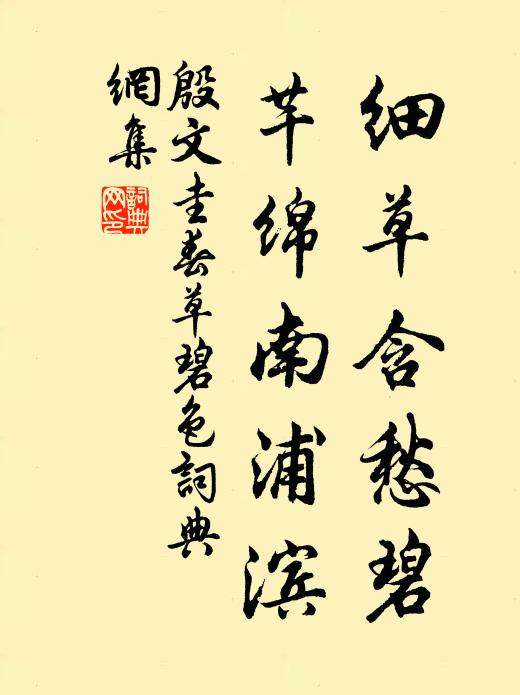 细草含愁碧
芊绵南浦滨
殷文圭春草碧色詞典
網集
詞典
网印